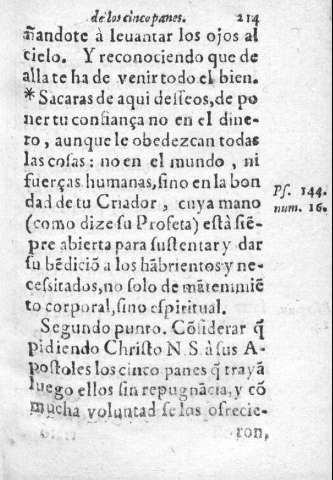 de los cinco panes. 214
ñandote à leuantar los ojos al
cielo. Y reconociendo que de
alla te ha de venir todo el bien.
* Sacaras de aqui desseos, de po
ner tu confiança no en el dine-
ro, aunque le obedezcan todas
las cosas: no en el mundo, ni
fuerças humanas, sino en la bon
dad de tu Criador, cuya mano
(como dize su Profeta) està siẽ-
pre abierta para sustentar y dar
su bẽdiciõ a los hãbrientos y ne-
cessitados, no solo de mãtenimiẽ
to corporal, sino espiritual.
Ps. 144.
num. 16.
Segundo punto. Cõsiderar q̃
pidiendo Christo N. S. à sus A-
postoles los cinco panes q̃ trayã
luego ellos sin repugnãcia, y cõ
mucha voluntad se los ofrecie-
ron,